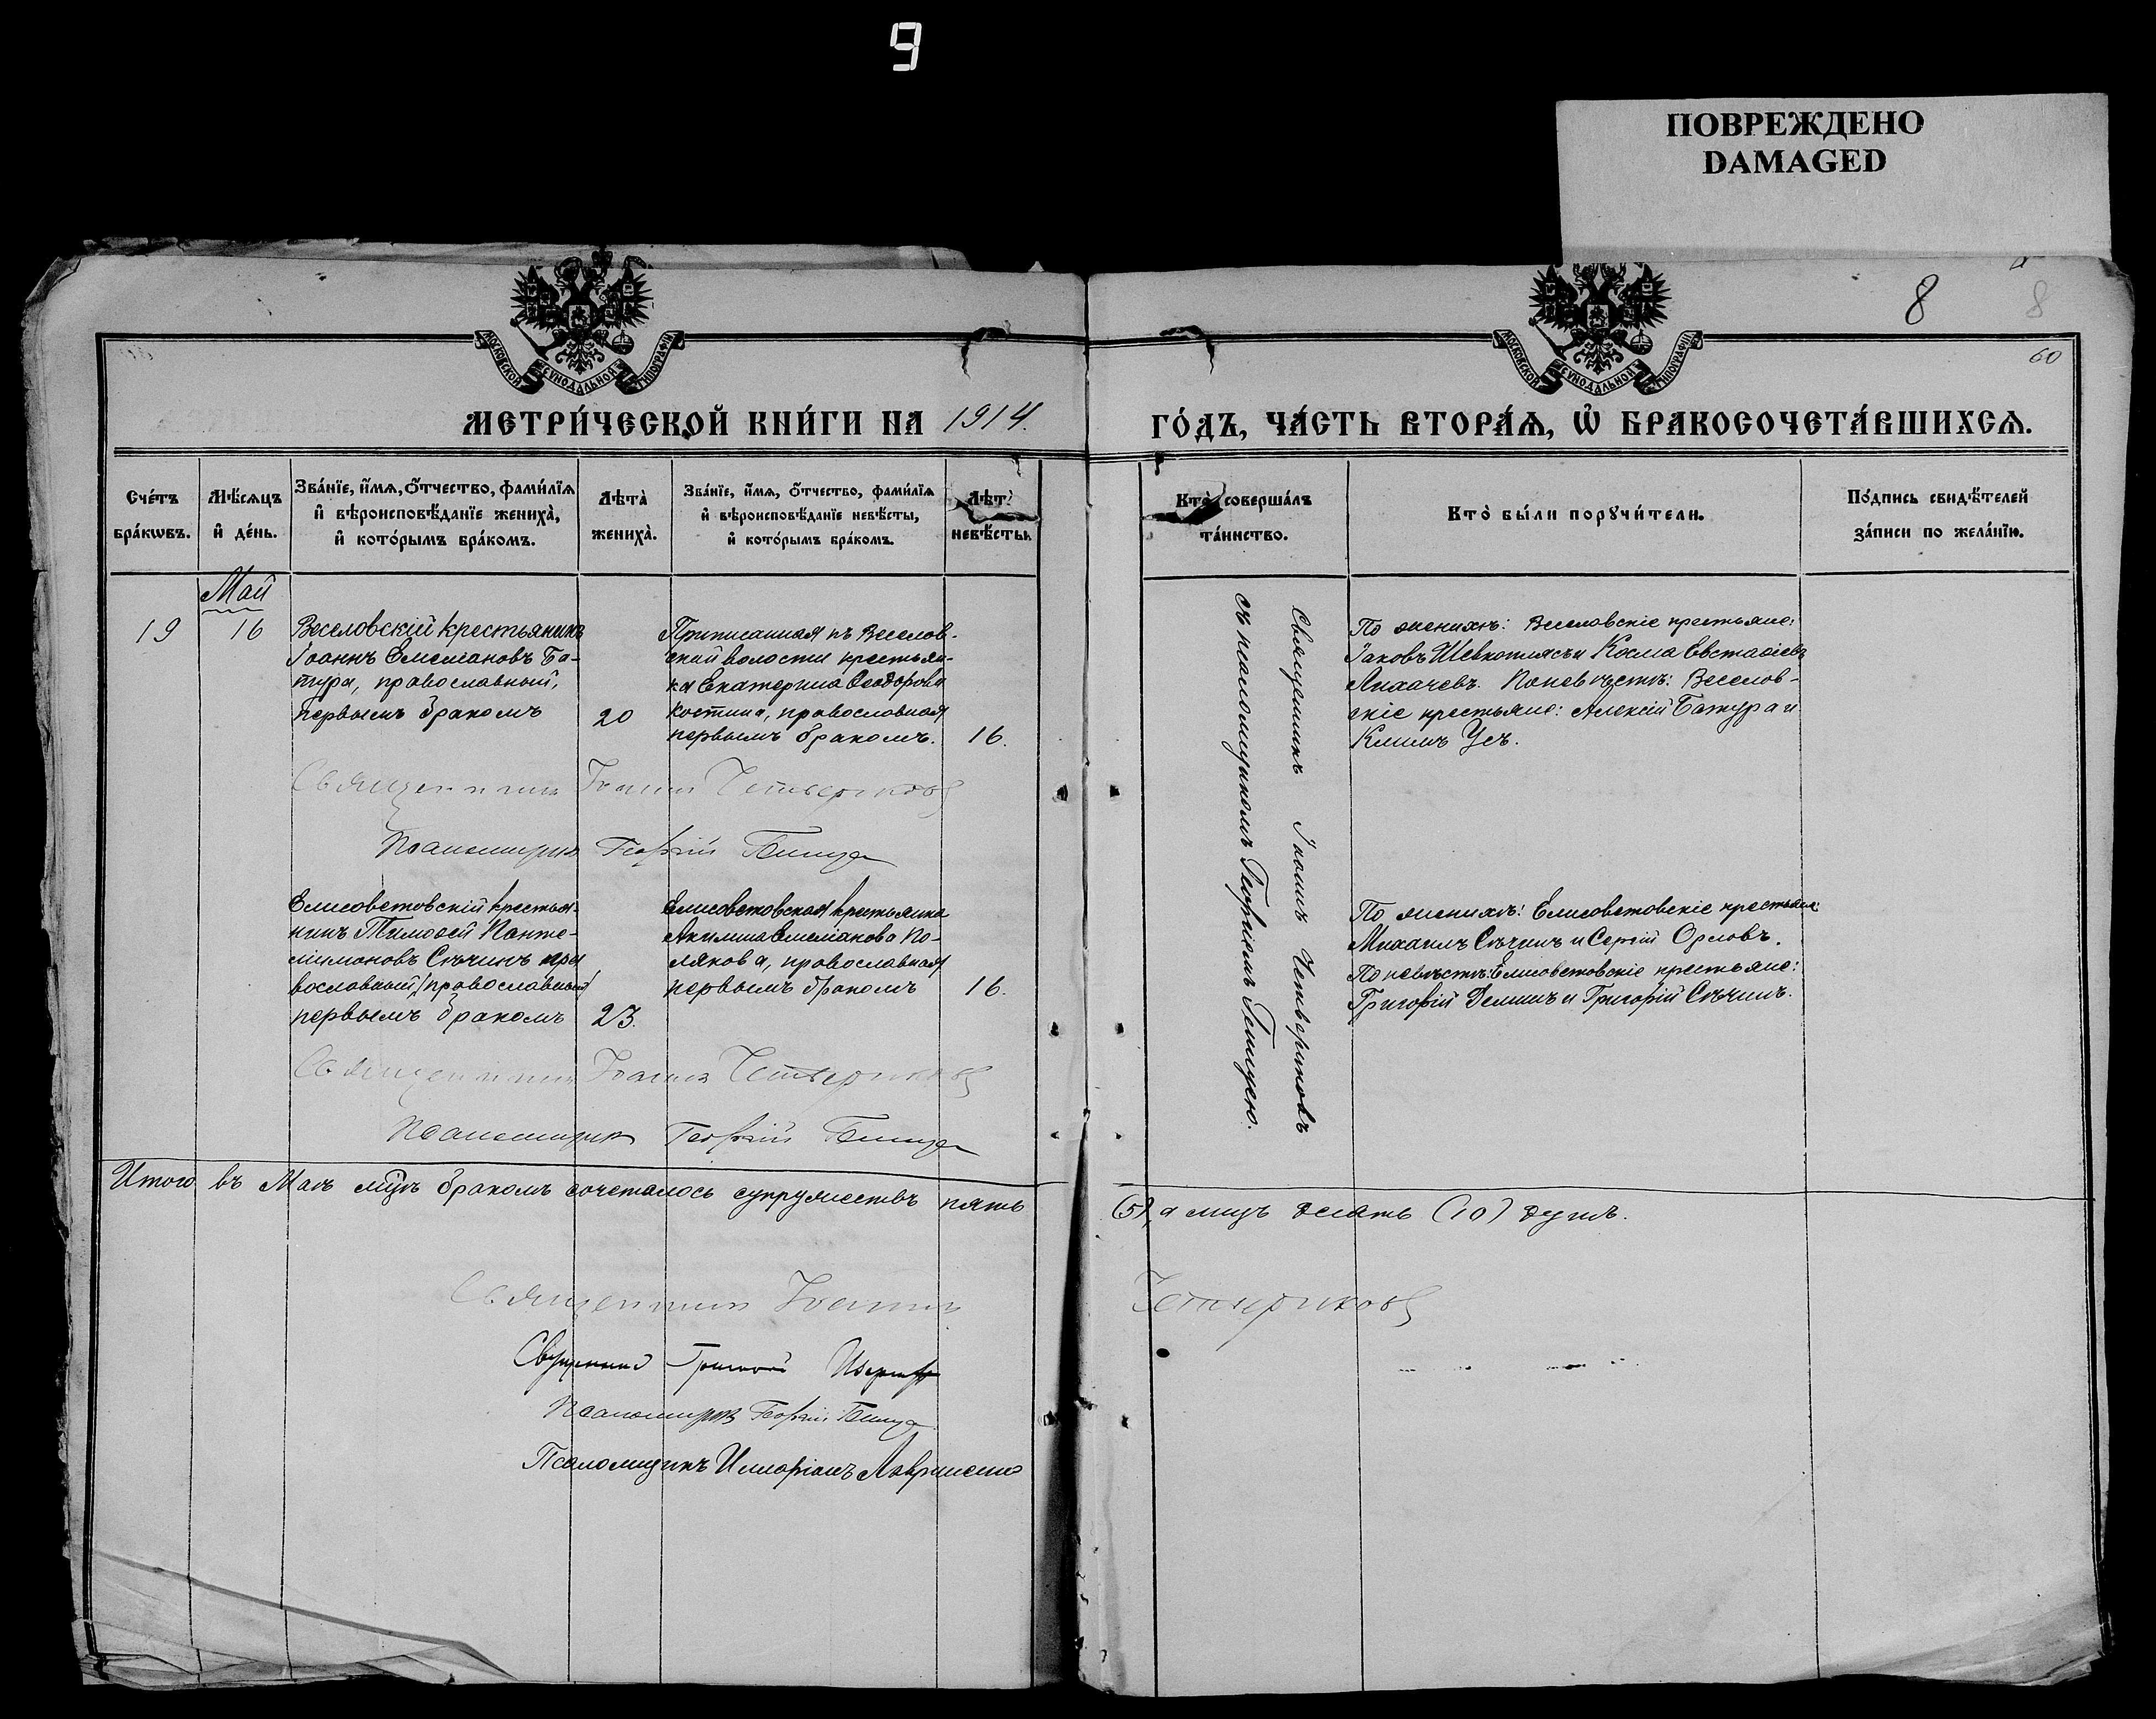 9
ПОВРЕЖДЕНО
DAMAGED
8
8
60
МОСКОВСКОЙ СѴНОДАЛЬНОЙ ТИПОГРАФІИ
МОСКОВСКОЙ СѴНОДАЛЬНОЙ ТИПОГРАФІИ
МЕТРИ́ЧЕСКОЙ КНИ́ГИ НА 1914.
ГО́ДЪ, ЧА́СТЬ ВТОРА́Ѧ, Ѡ БРАКОСОЧЕТА́ВШИХСѦ.
Сче́тъ бра́кѡвъ.
Мѣ́сяцъ и҆ де́нь.
Зва́нїе, и҆́мя, ѻ҆́тчество, фами́лїя и҆ вѣроисповѣ́данїе жениха̀, и҆ кото́рымъ бра́комъ.
Лѣта̀ жениха̀.
Зва́нїе, и҆́мя, ѻ҆́тчество, фами́лїя и҆ вѣроисповѣ́данїе невѣ́сты, и҆ кото́рымъ бра́комъ.
Лѣта̀ невѣ́сты.
Кто̀ соверша́лъ та́инство.
Кто̀ бы́ли порꙋчи́тели.
По́дпись свидѣ́телей за́писи по жела́нїю.
Май
19
16
Веселовскій крестьянинъ
Іоаннъ Емеліановъ Ба-
тура, православный,
первымъ бракомъ
20
Приписанная къ Веселов-
ской волости крестьян-
ка Екатерина Ѳеодорова
Костина, православная
первымъ бракомъ.
16.
Священникъ Іоаннъ Четвериковъ
съ псаломщикомъ Георгіемъ
По женихѣ: Веселовскіе крестьяне:
Іаковъ Шевкоплясъ и Косма Евстафіевъ
Лихачевъ. По невѣстѣ: Веселов-
скіе крестьяне: Алексій Батура и
Климъ Усъ.
Священникъ Іоаннъ Четвериковъ
Псаломщикъ Георгій
Елисоветовскій крестья-
нинъ Тимоѳей Панте-
лимоновъ Сѣчинъ пра
вославный /православный/
первымъ бракомъ
23.
Елисоветовская крестьянка
Акилина Емеліанова По-
лякова, православная
первымъ бракомъ
16.
По женихѣ: Елисоветовскіе крестьяне:
Михаилъ Сѣчинъ и Сергій Орловъ.
По невѣстѣ: Елисоветовскіе крестьяне:
Григорій Деминъ и Григорій Сѣчинъ.
Священникъ Іоаннъ Четвериковъ
Псаломщикъ Георгій
Итого въ Маѣ мцѣ бракомъ сочеталось супружествъ пять (5), а лицъ десять (10) душъ.
Священникъ Іоаннъ Четвериковъ
Священникъ Григорій
Псаломщикъ Георгій
Псаломщикъ Иларіонъ Лавриненко